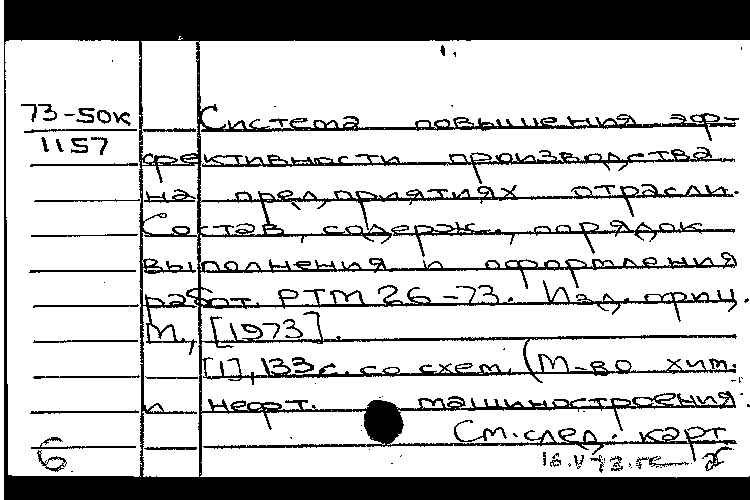 73-50к
1157
Система повышения эф-
фективности производства
на предприятиях отрасли.
Состав, содерж., порядок
выполнения и оформления
работ. РТМ 26-73. Изд. офиц.
М., [1973].
[1], 133 с. со схем. (М-во хим.
и нефт. машиностроения.
См. след. карт.
6